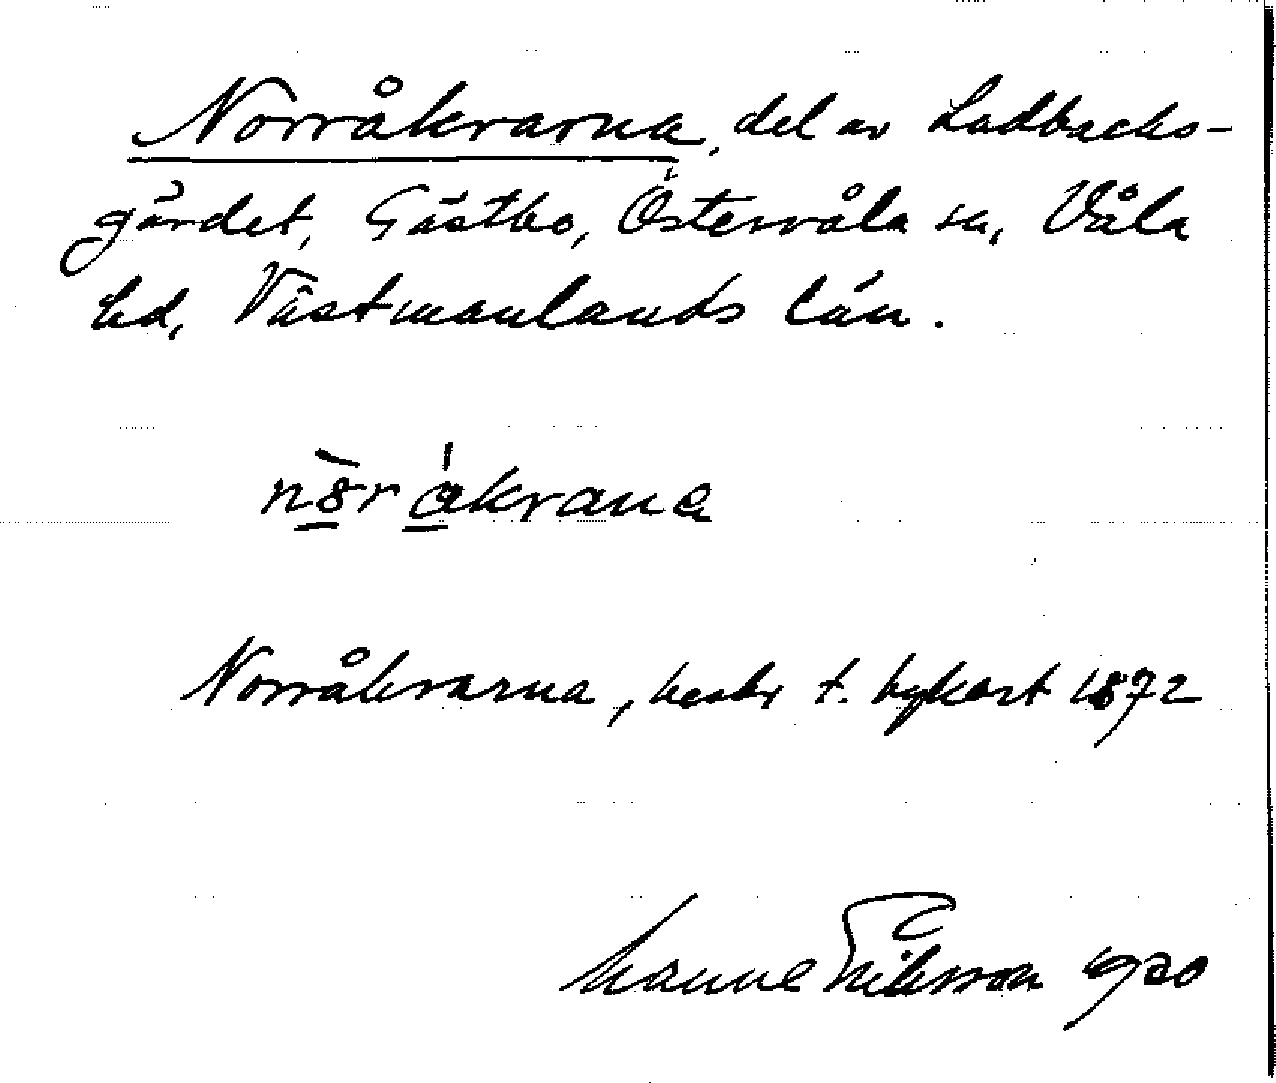 Norråkrarna, del av Ladbacks-
gärdet, Gästbo, Östervåla sn, Våla
hd, Västmanlands län.
Norråkrarna, beskr t. bykart 1872
Manne Eriksson 1930